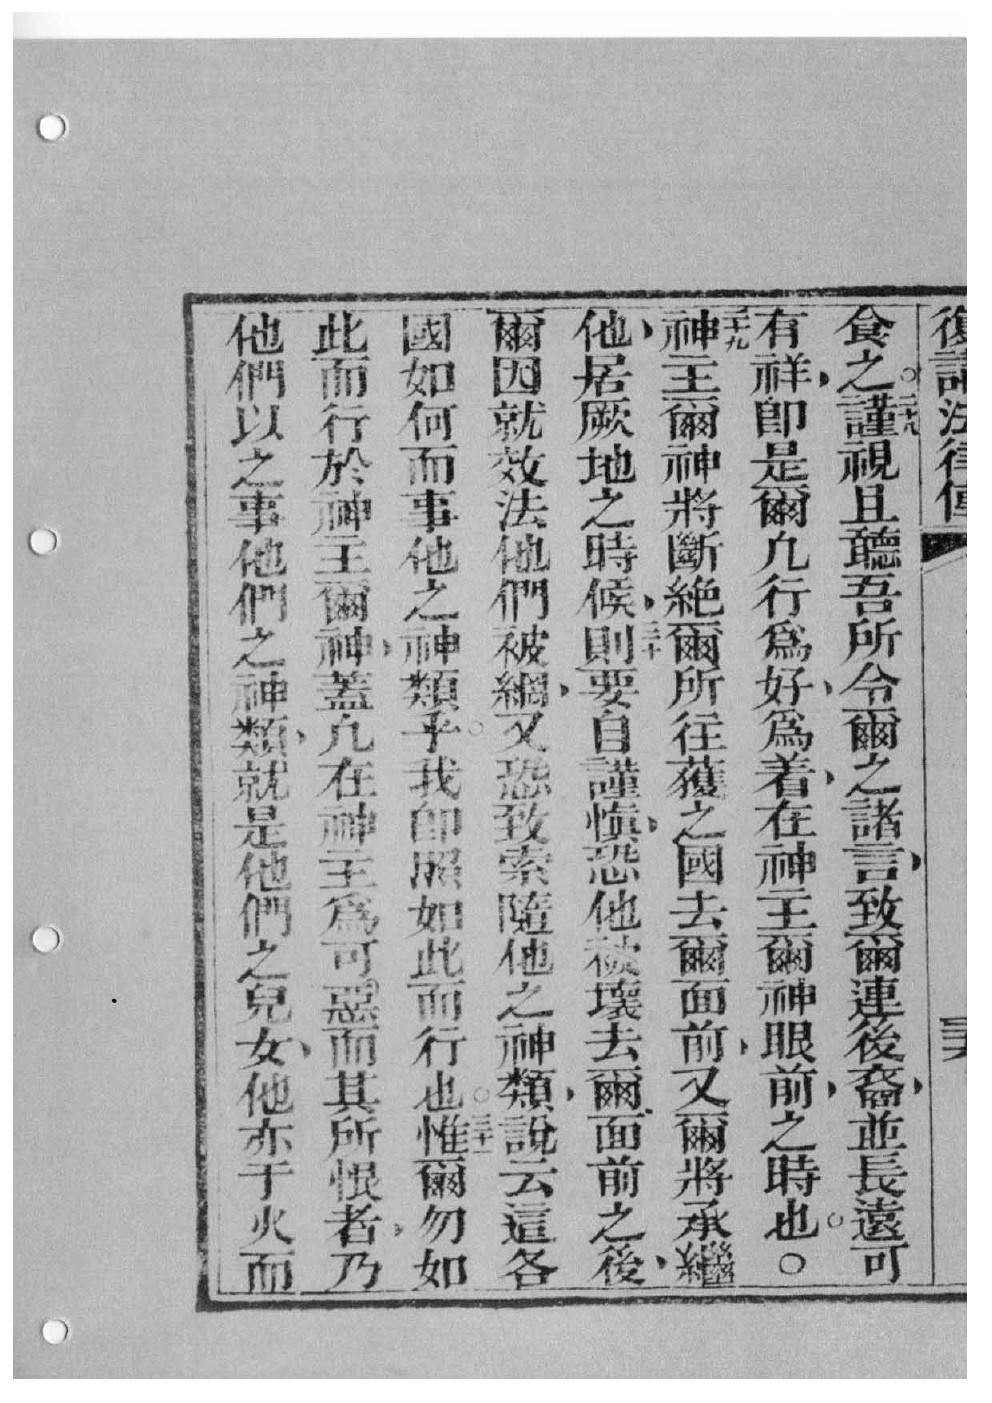 復講法律傳
食之。二十八謹視且聽吾所令爾之諸言、致爾連後裔、並長遠可
有祥、即是爾凡行爲好、爲着、在神主爾神眼前、之時也。○
二十九神主爾神將斷絕爾所往獲之國去爾面前、又爾將承繼
他、居厥地之時候、三十則要自謹愼、恐他被壞去爾面前之後、
爾因就效法他們被網、又恐致索隨他之神類、說云這各
國如何而事他之神類乎。我卽照如此而行也。三十一惟爾勿如
此而行於神主爾神、蓋凡在神主爲可惡而其所恨者、乃
他們以之事他們之神類、就是他們之兒女、他亦于火而